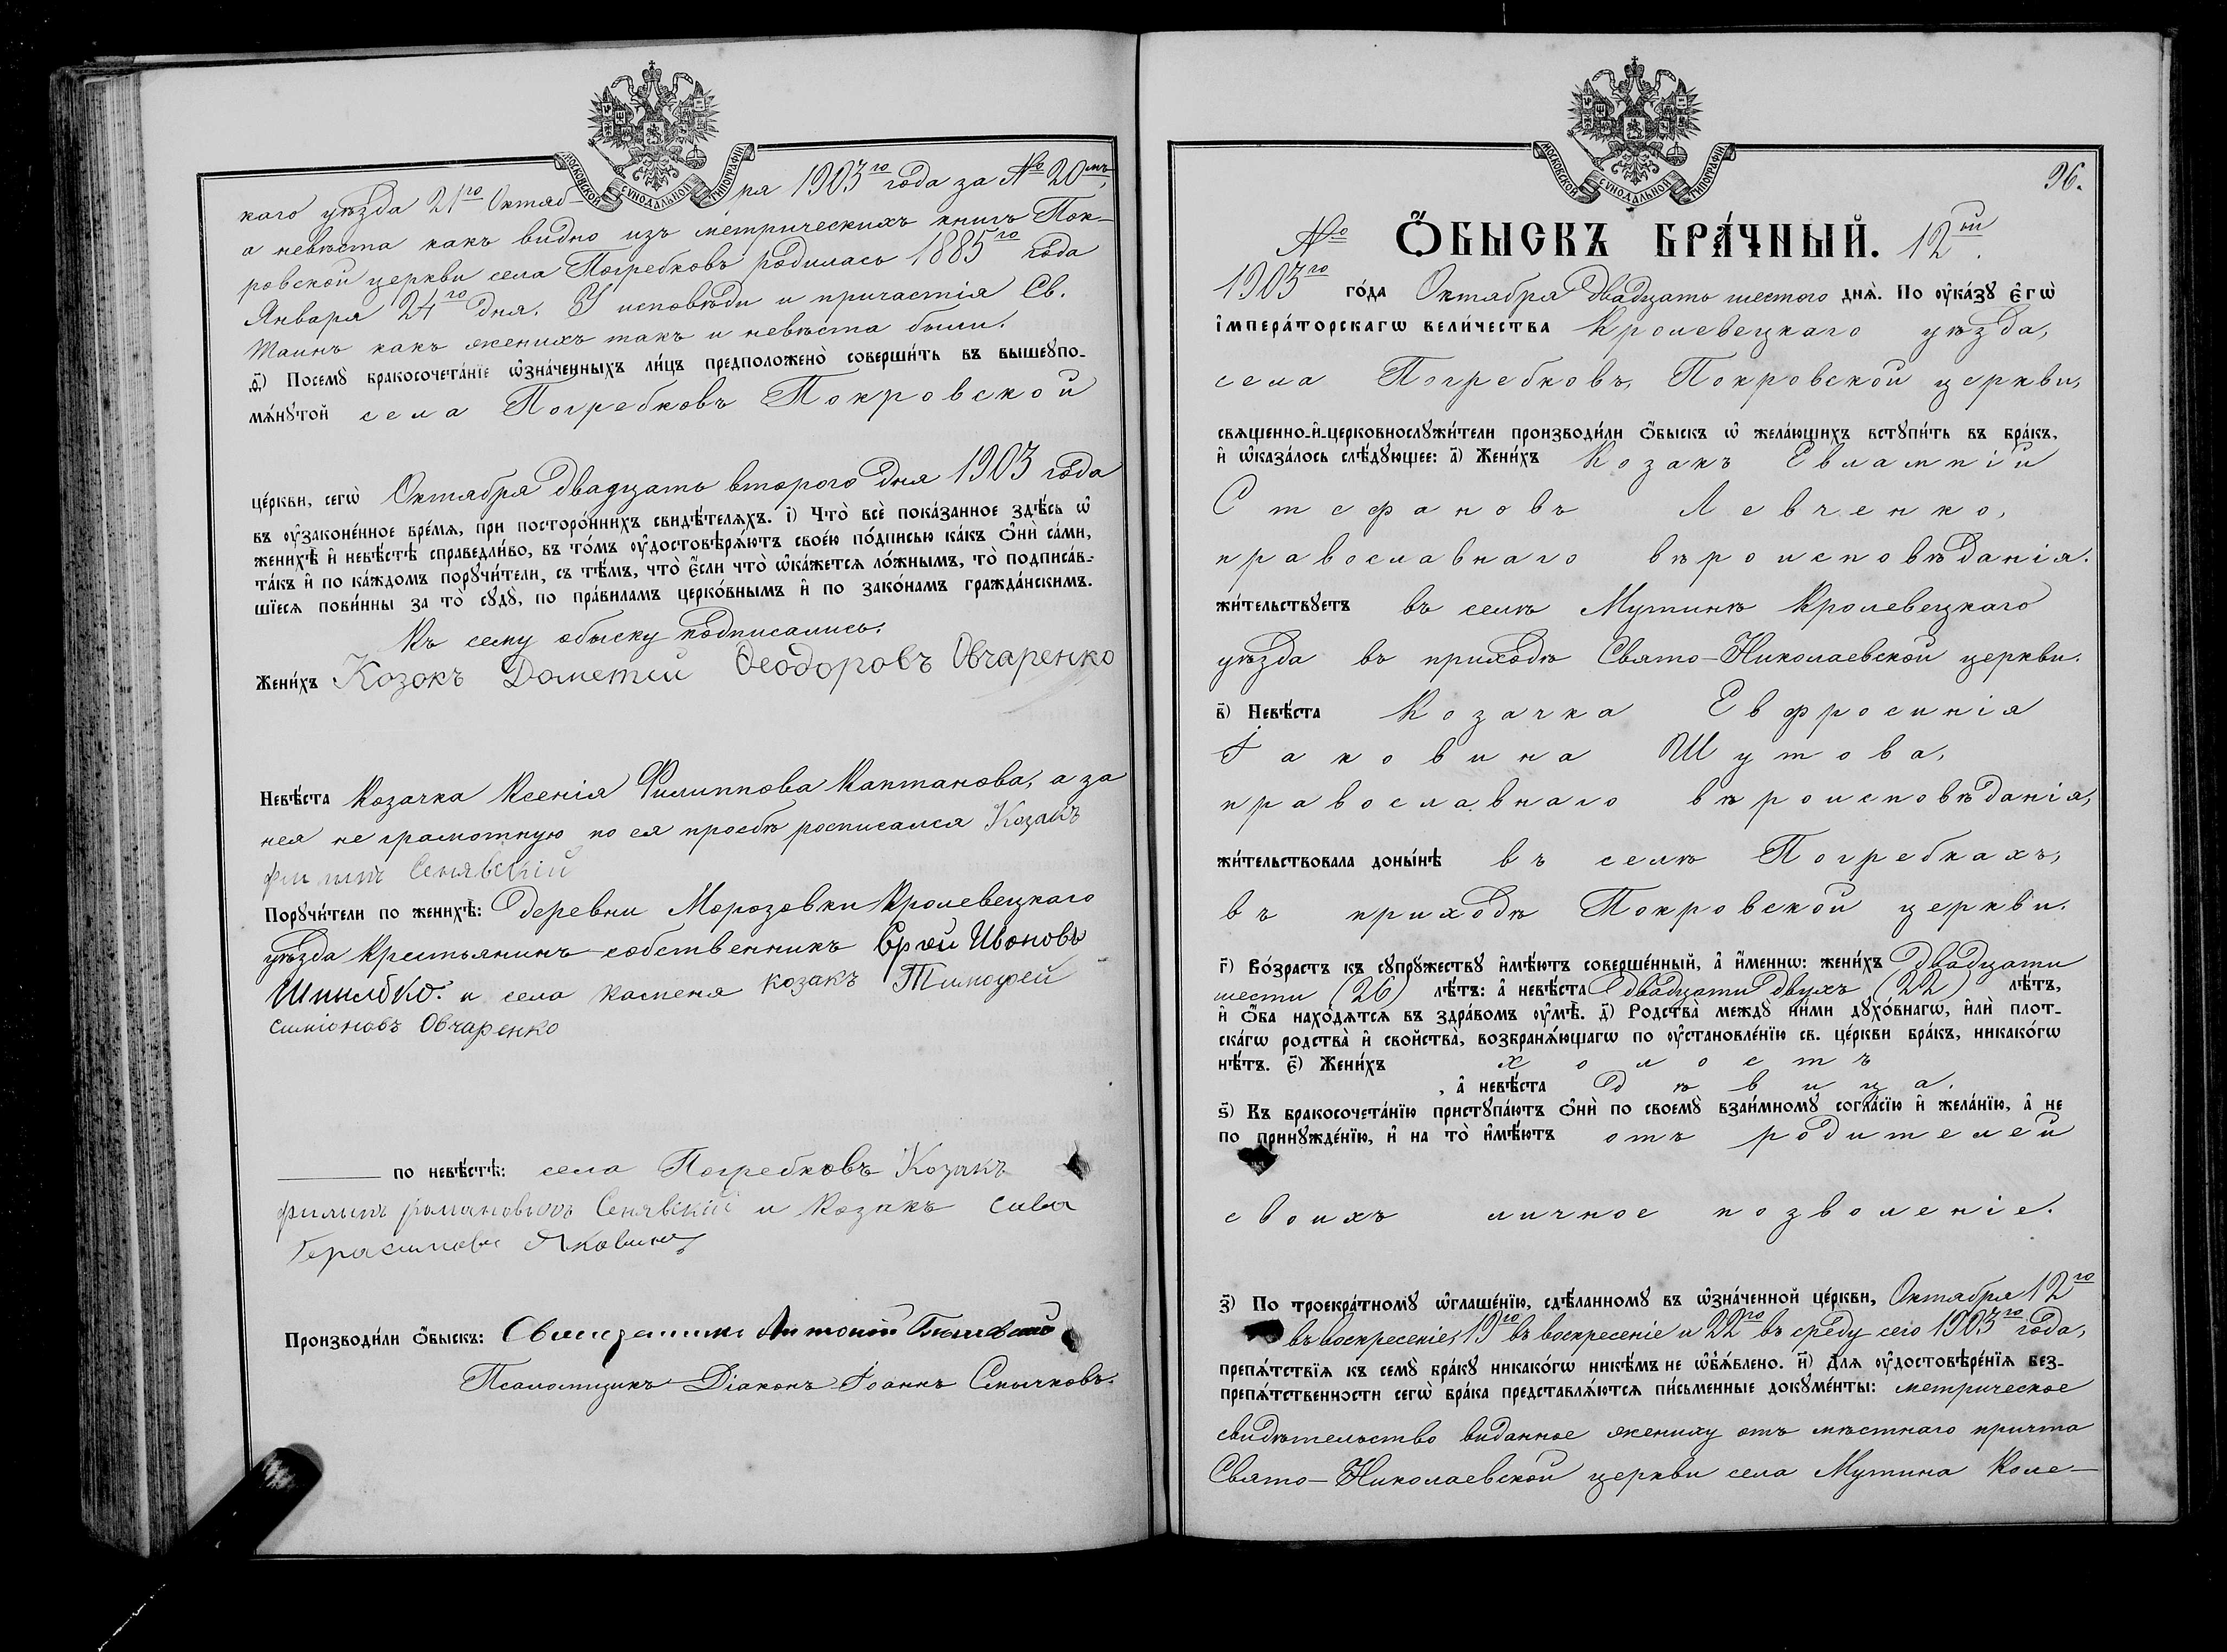 МОСКОВСКОЙ СѴНОДАЛЬНОЙ ТИПОГРАФІИ
каго уѣзда 21го Октяб- ря 1903го года за № 20мъ,
а невѣста какъ видно изъ метрическихъ книгъ Пок-
ровской церкви села Погребковъ родилась 1885го года
Января 24го дня. У исповѣди и причастія Св.
Таинъ какъ женихъ такъ и невѣста были.
ѳ҃) Посемꙋ бракосочета́нїе ѡ҆зна́ченныхъ ли́цъ предположено̀ соверши́ть въ вышеꙋпо-
мѧ́нꙋтой села Погребковъ Покровской
це́ркви, сегѡ̀ Октября двадцать второго дня 1903 года
въ ᲂу҆законе́нное вре́мѧ, при посторо́ннихъ свидѣ́телѧхъ. і҃) Что̀ всѐ пока́занное здѣ́сь ѡ҆
женихѣ̀ и҆ невѣ́стѣ справедли́во, въ то́мъ ᲂу҆достовѣрѧ́ютъ свое́ю по́дписью ка́къ ѻ҆нѝ са́ми,
та́къ и҆ по ка́ждомъ порꙋчи́тели, съ тѣ́мъ, что̀ є҆́сли что̀ ѡ҆ка́жетсѧ ло́жнымъ, то̀ подписа́в-
шїесѧ пови́нны за то̀ сꙋдꙋ̀, по пра́виламъ церко́внымъ и҆ по зако́намъ гражда́нскимъ.
Къ сему обыску подписались:
Жени́хъ Козокъ Дометий Ѳеодоровъ Овчаренко
Невѣ́ста козачка Ксенія Филиппова Каптанова, а за
нея не грамотную по ея просбѣ росписался Козакъ
Филипъ Сенявскій
Порꙋчи́тели по женихѣ̀: деревни Морозовки Кролевецкаго
уѣзда крестьянинъ-собственникъ Ивоновъ
и села Каменя козакъ Тимофей
Симіоновъ Овчаренко
по невѣ́стѣ: села Погребковъ Козакъ
Филипъ Сенявский и козакъ Сива
Герасимовъ
Производи́ли ѻ҆́быскъ: Священникъ Антоній
Псаломщикъ-Діаконъ Іоаннъ Смычковъ.
МОСКОВСКОЙ СѴНОДАЛЬНОЙ ТИПОГРАФІИ
96.
№ Ѻ҆́БЫСКЪ БРА́ЧНЫЙ. 12ой.
1903го го́да Октября двадцать шестого днѧ̀. По ᲂу҆ка́зꙋ є҆гѡ̀
і҆мпера́торскагѡ вели́чества Кролевецкаго уѣзда,
села Погребковъ, Покровской церкви,
свѧщенно-и҆-церковнослꙋжи́тели производи́ли ѻ҆́быскъ ѡ҆ жела́ющихъ встꙋпи́ть въ бра́къ,
и҆ ѡ҆каза́лось слѣ́дꙋющее: а҃) Жени́хъ Козакъ Евлампій
Стефановъ Левченко,
православнаго вѣроисповѣданія.
жи́тельствꙋетъ въ селѣ Мутинѣ Кролевецкаго
уѣзда въ приходѣ Свято-Николаевской церкви.
в҃) Невѣ́ста Козачка Евфросинія
Іаковина Шутова,
православнаго вѣроисповѣданія,
жи́тельствовала доны́нѣ въ селѣ Погребкахъ,
въ приходѣ Покровской церкви.
г҃) Во́зрастъ къ сꙋпрꙋ́жествꙋ и҆мѣ́ютъ соверше́нный, а҆ и҆́меннѡ: жени́хъ двадцати
шести (26) лѣ́тъ: а҆ невѣ́ста двадцати двухъ (22) лѣ́тъ,
и҆ ѻ҆́ба нахо́дѧтсѧ въ здра́вомъ ᲂу҆мѣ̀. д҃) Родства̀ междꙋ̀ ни́ми дꙋхо́внагѡ, и҆лѝ плот-
ска́гѡ родства̀ и҆ свойства̀, возбранѧ́ющагѡ по ᲂу҆становле́нїю св. це́ркви бра́къ, никако́гѡ
нѣ́тъ. є҃) Жени́хъ холостъ
, а҆ невѣ́ста дѣвица.
ѕ҃) Къ бракосочета́нїю пристꙋпа́ютъ ѻ҆нѝ по своемꙋ̀ взаи́мномꙋ согла́сїю и҆ жела́нїю, а҆ не
по принꙋжде́нїю, и҆ на то̀ и҆мѣ́ютъ отъ родителей
своихъ личное позволеніе.
з҃) По троекра́тномꙋ ѡ҆глаше́нїю, сдѣ́ланномꙋ въ ѡ҆зна́ченной це́ркви, Октября 12го
въ воскресеніе, 19го въ воскресеніе и 22го въ среду сего 1903го года,
препѧ́тствїѧ къ семꙋ̀ бра́кꙋ никако́гѡ никѣ́мъ не ѡ҆б̾ѧ́влено. и҃) Длѧ ᲂу҆достовѣре́нїѧ без-
препѧ́тственности сегѡ̀ бра́ка представлѧ́ютсѧ пи́сьменные докꙋме́нты: метрическое
свидѣтельство виданное жениху отъ мѣстнаго причта
Свято-Николаевской церкви села Мутина Коле-